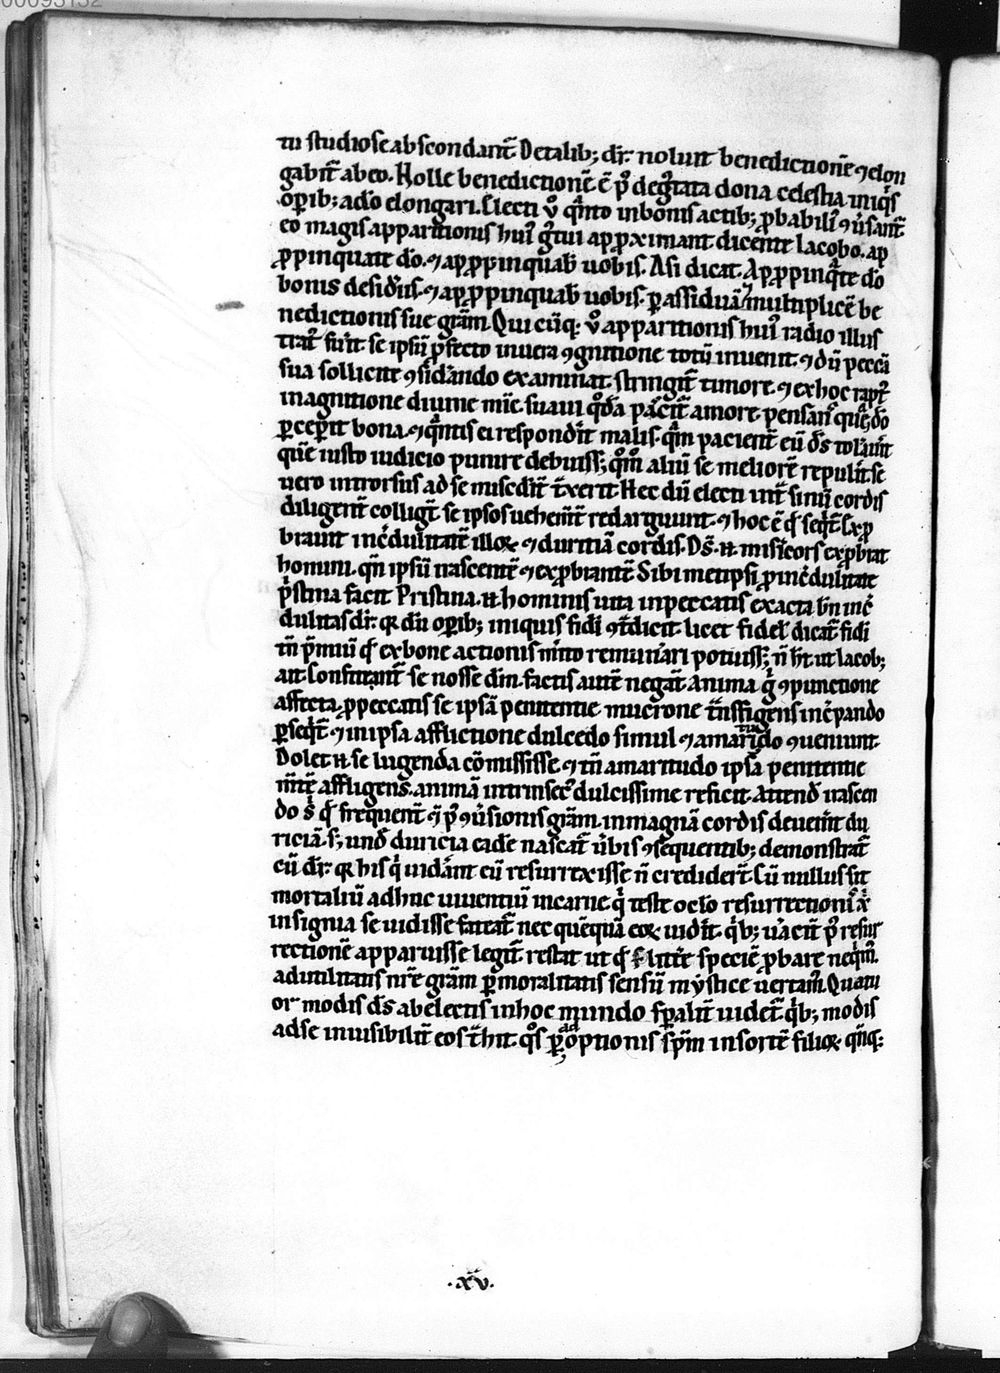 00095132
tu studiose abscondant̃. De talib; dr̃. noluit benedictionẽ ⁊ elon
gabit̃ ab eo. Nolle benedictionẽ ẽ p̱ degͥtata dona celestia iniqͥs
oꝑib; a do elongari. Electi v̊ qͣnto in bonis actib; ꝓbabiliꝰ ꝯũsant̃
eo magis apparitionis huiꝰ gͣtui appꝓximant dicente Iacobo. ap
ꝓpinquate do. ⁊ apꝓpinquab̃ uobis. Ac si dicat. Apꝓpinqͣte do
bonis desid̃iis. ⁊ apꝓpinquab̃ uobis. ꝑ assiduã ⁊ multiplicẽ be
nedictionis sue grãm. Qui cũq; v̊ apparitionis huiꝰ radio illus
trat̃ fũit se ipsũ ꝓfecto in uera ꝯgnitione totũ inuenit. ⁊ dũ peccã
sua sollicite ꝯsid̃ando examinat. stringit̃ timore. ⁊ ex hoc rapt̃
in agnitione diuine mĩe. suaui qͦdã pascit̃ amore. pensans̃ que do
ꝑcepit bona. ⁊ qͣntis ei respond̃it malis. qͣm pacient̃ eũ ds̃ tol̃auit
quẽ iusto iudicio punire debuiss;. qͦm aliũ se meliorẽ repulit. se
uero introrsus ad se misc̃dit̃ t̃xerit. Hec dũ electi int̃ sinũ cordis
diligent̃ colligt̃. se ipsos uehem̃t̃ redarguunt. ⁊ hoc ẽ qđ seqͥt̃. Exꝓ
brauit inc̃dulitatẽ illoꝝ ⁊ duritiã cordis. Ds̃. n̄. mis̃icors exꝓbrat
homini. qñ ipsũ nascentẽ ⁊ exꝓbrantẽ sibi metipsi ꝓ inc̃dulitate
pͥstina facit. Pristina. n̄. hominis uita in peccatis exacta bñ inc̃
dulitas dr̃. qꝛ dũ oꝑib; iniquis fidi ꝯt̃dicit. licet fidel̃ dicat̃ fidi
tñ p̃miũ qđ ex bone actionis m̃ito remun̂ari potuiss;. ñ ht̃. ut Iacob;
ait. Confitent̃ se nosse dm̃. factis autẽ negãt. Anima g̊ ꝯpunctione
affecta. ꝓ peccatis se ipsã penitentie mucrone t̃nsfigens inc̃pando
ꝑseqͥt̃. ⁊ in ipsa afflictione dulcedo simul ⁊ amaritudo ꝯueniunt.
Dolet. n̄. se lugenda cõmississe ⁊ tñ amaritudo ipsa penitentie
m̃tẽ affligens. animã intrinsecꝰ dulcissime reficit. Attend̃ nascen
do s̃ qđ frequent̃ ⁊ p̃ ꝯũsionis grãm. in magnã cordis deueñit du
riciã. s;. und̃ duricia eadẽ nascat̃ ũbis ꝯsequentib; demonstrat̃
cũ dr̃. qꝛ his qͥ uid̃ant eũ resurrexisse ñ credider̃t. Cũ nullus sit
mortaliũ adhuc uiuentiũ in carne qͥ teste oc̃lo resurrectioniꝰ xͥ
insignia se uidisse fateat̃. nec quẽquã eoꝝ uid̃it. qͥb; uacũ p̃ resur
rectionẽ apparuisse legit̃. restat ut qđ s litt̃e speciẽ ꝓbare neqͥm̃.
ad utilitatis nr̃e grãm ꝑ moralitatis sensũ mystice ũtam̃. Quatu
or modis ds̃ ab electis in hoc mundo sp̃alit̃ uidet̃. qͥb; modis
ad se inuisibilit̃ eos t̃hit. qͦs ꝑ adoptionis sp̃m in sortẽ filioꝝ. qñq;
.xv.